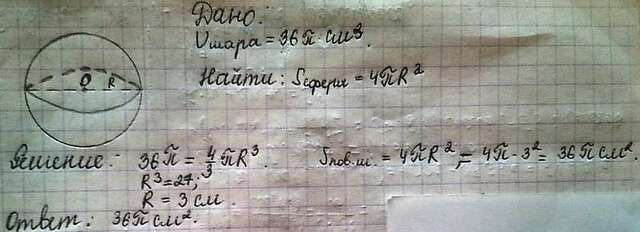 Дано:
Vшара = 36π см³.
Найти: Sсферы = 4πR²
O R
Решение: 36π = 4/3 πR³. Sпов.ш. = 4πR² = 4π·3² = 36π см².
R³ = 27;
R = 3 см.
Ответ: 36π см².